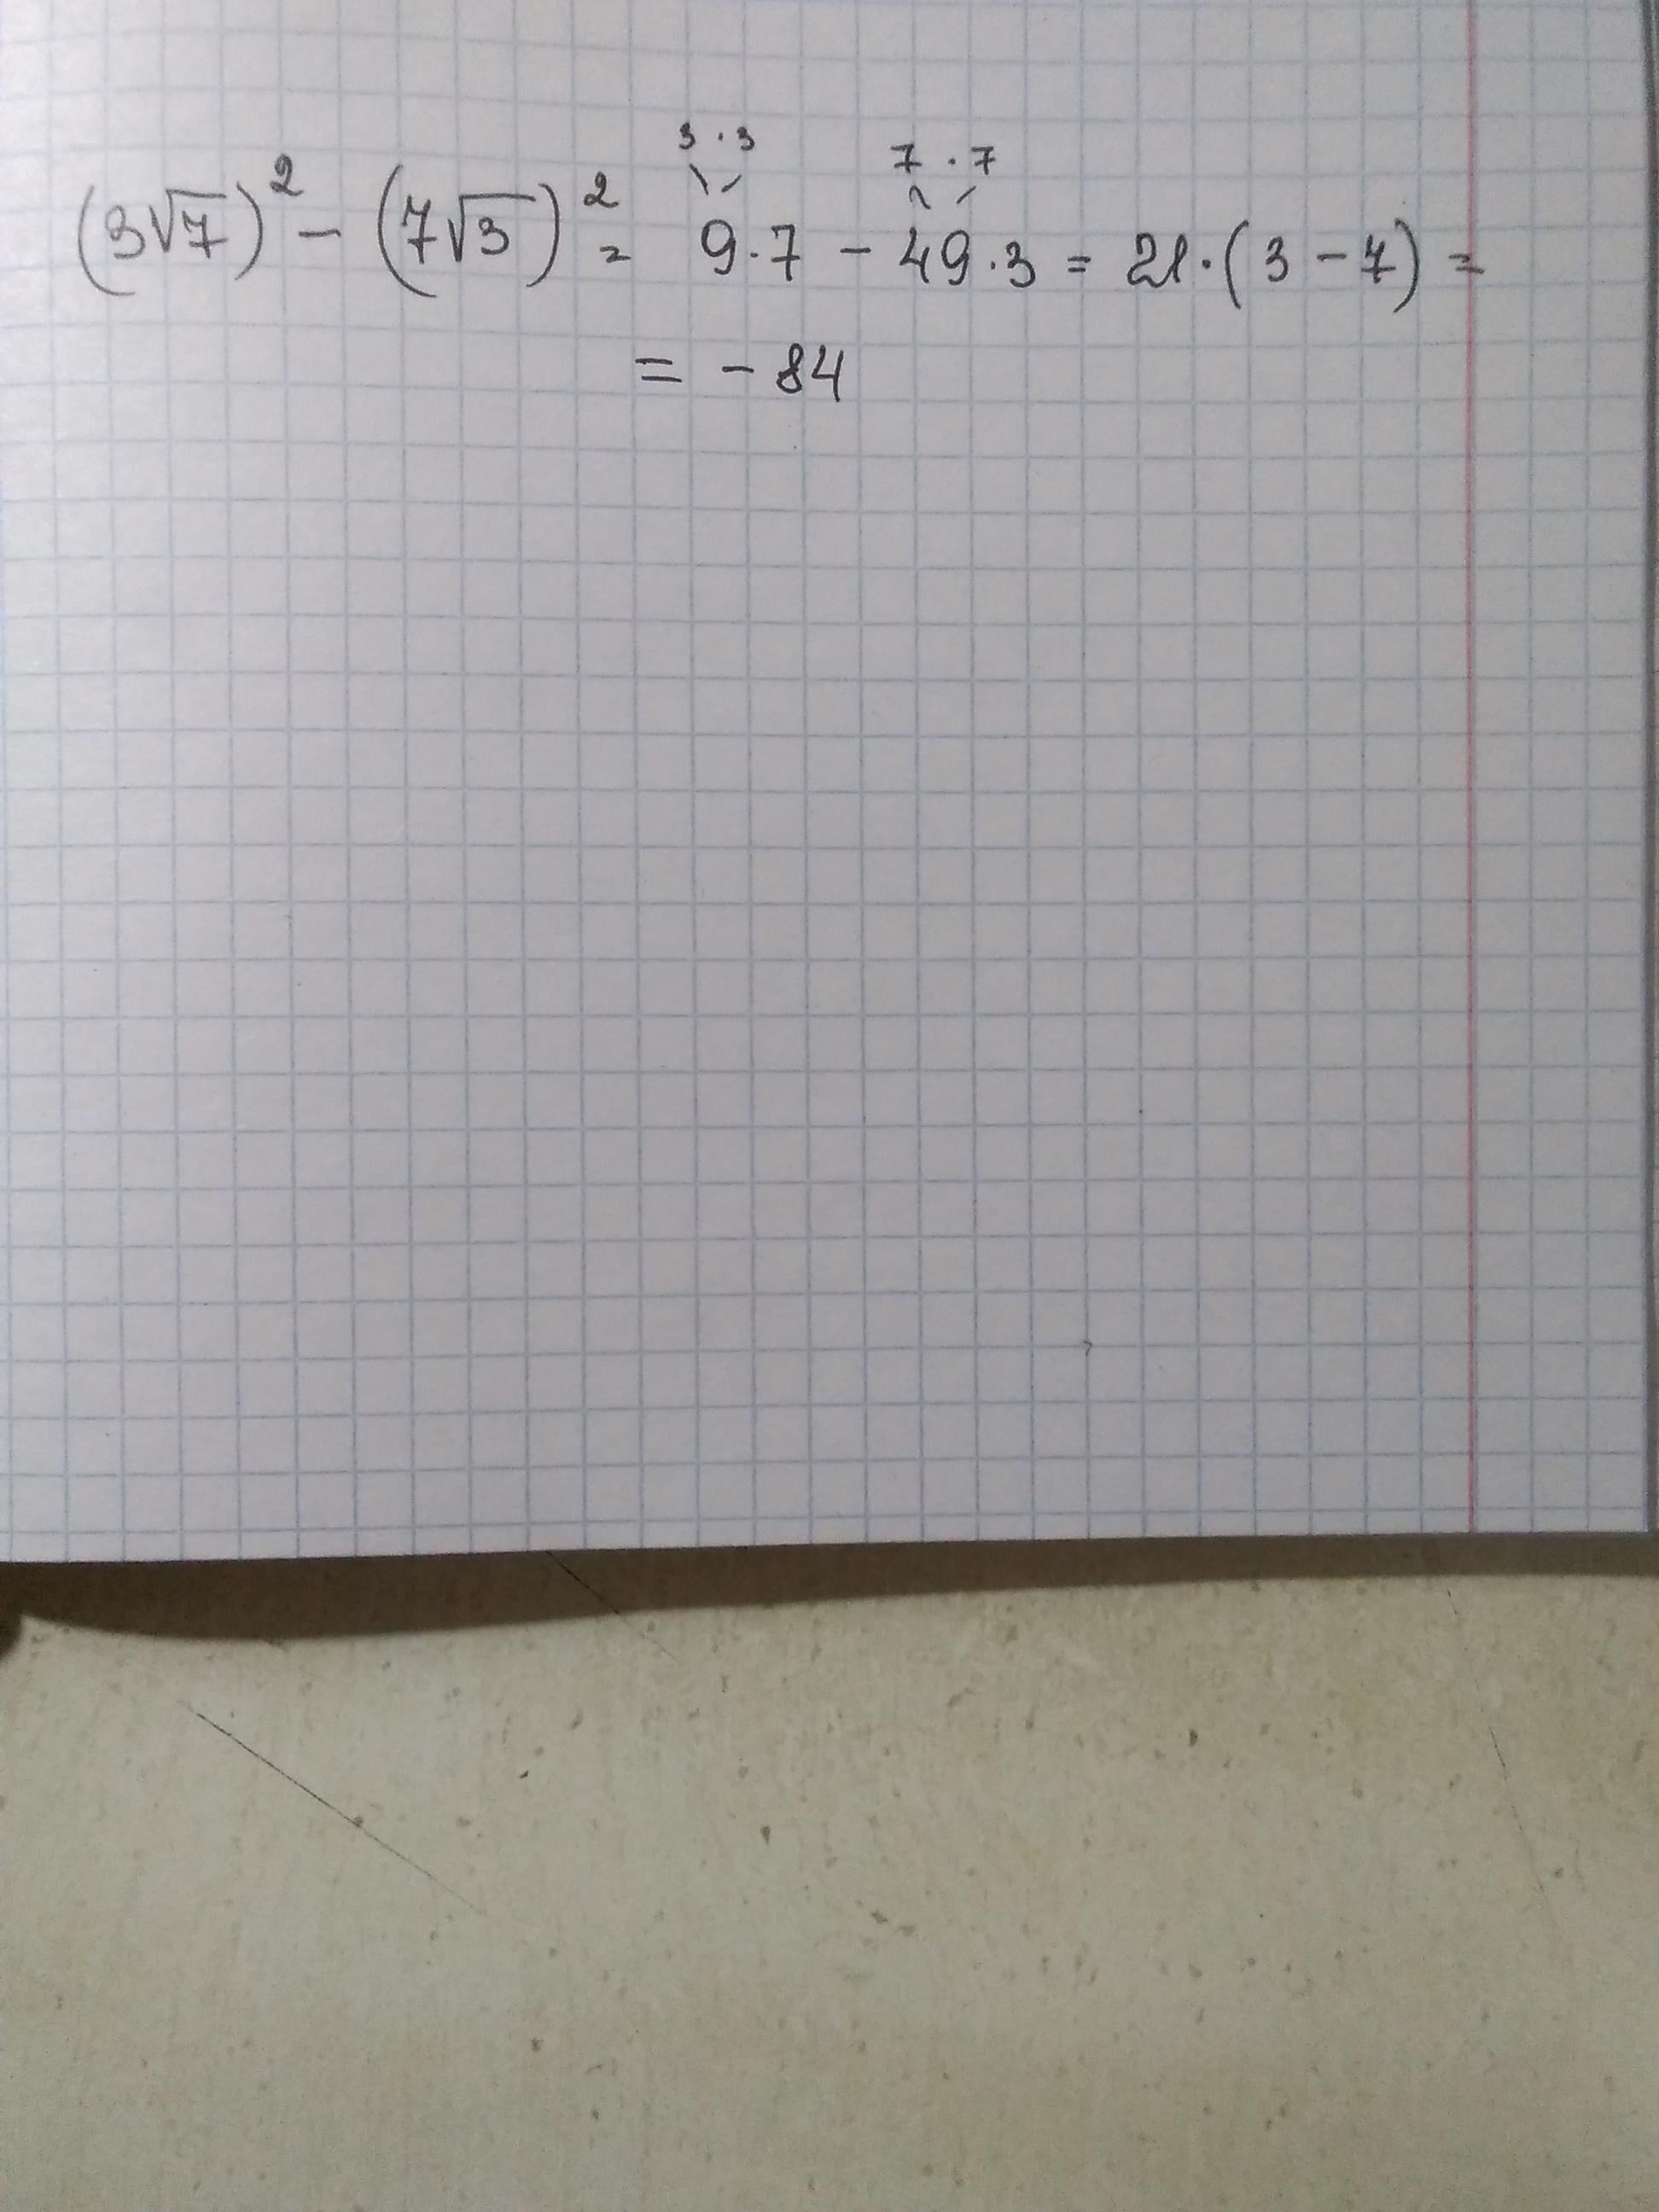 3 · 3 7 · 7
(3√7)² − (7√3)² = 9·7 − 49·3 = 21·(3 − 7) =
= − 84